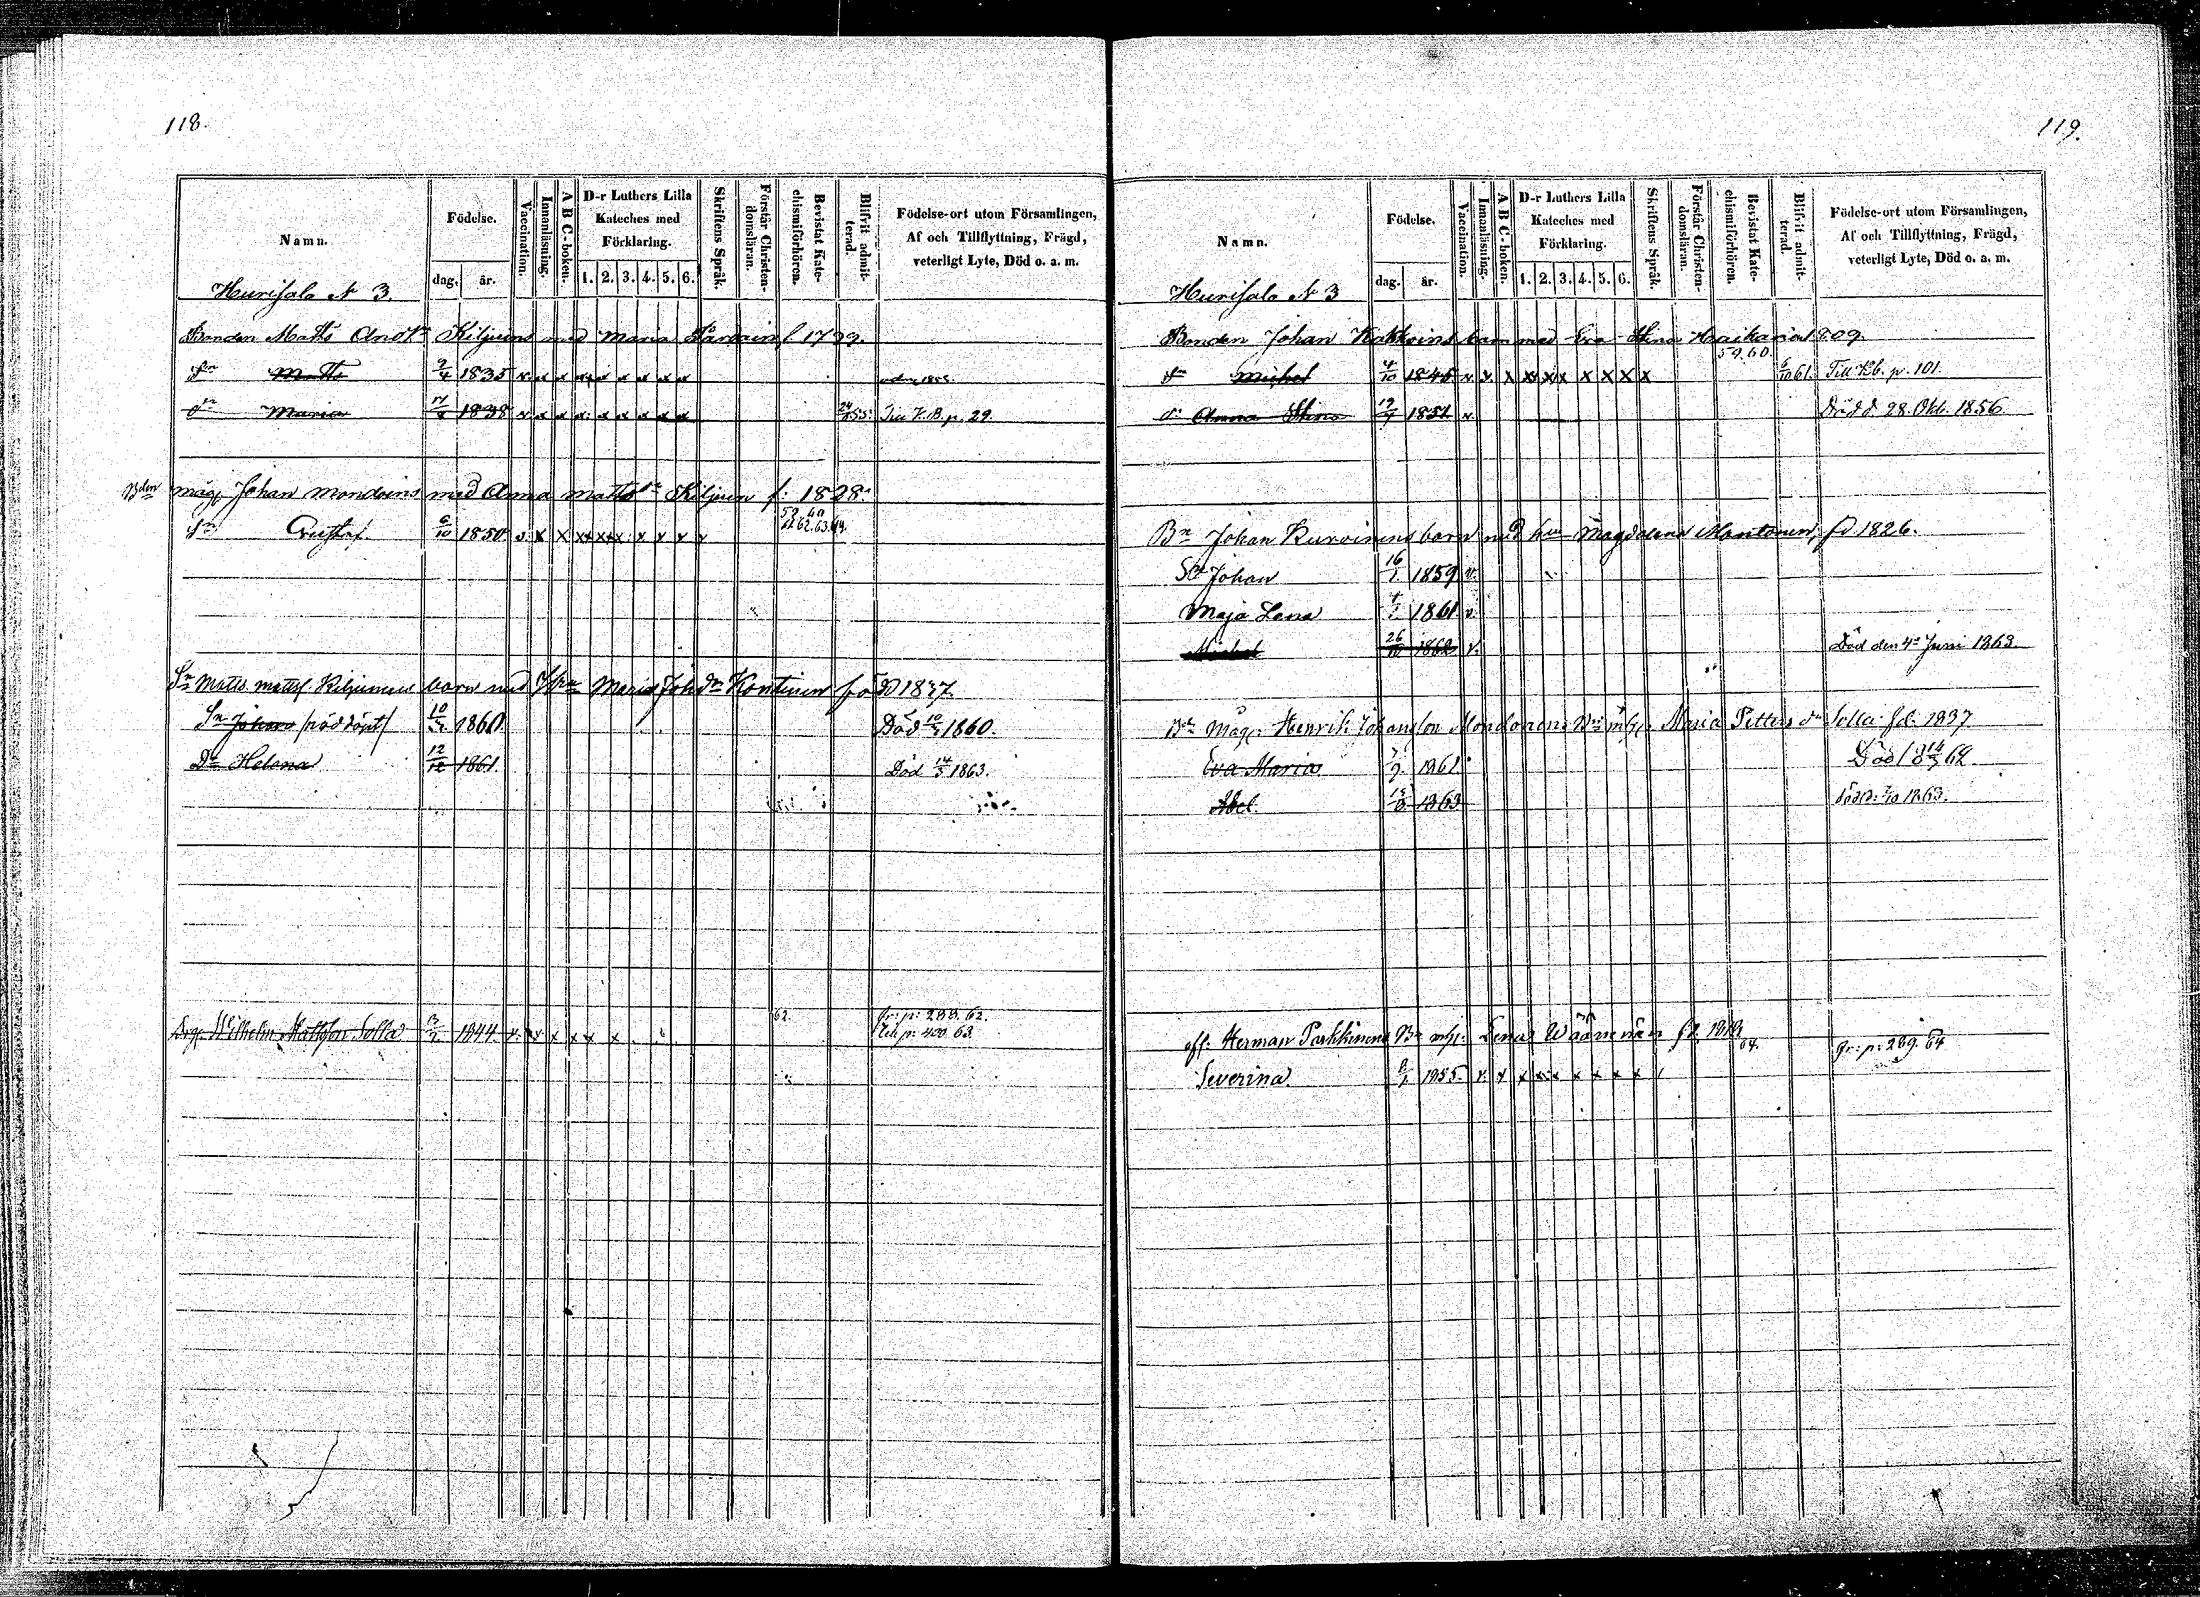 118.
Namn.
Födelse.
dag. år.
Vaccination.
Innanläsning.
A B C-boken.
D-r Luthers Lilla Kateches med Förklaring.
1. 2. 3. 4. 5. 6.
Skriftens Språk.
Förstår Christendomsläran.
Bevistat Katechismiförhören.
Blifvit admitterad.
Födelse-ort utom Församlingen,
Af och Tillflyttning, Frägd,
veterligt Lyte, Död o. a. m.
Hurisalo № 3.
Bonden Matts And Kiljuns med Maria f 1799.
Sn Matts 1835 v. x x x x x x x x
Maria 1838 v x x x x x x x x 24 55. Till K.B. p. 29.
Bden måg Johan Mondoins med Anna Matts Kiljun f: 1828.
59. 60
62. 63. 64.
Sn Gustaf 6/10 1850 v. x x x x x x x x x
Sn Matts Matts Kiljunens barn med Hn Maria Joh dr Kontinen född 1837
Sn Johan /nöddöpt/ 10 1860 Död 1860.
Dr Helena 12/12 1861. Död 14/5 1863.
Drg. Wilhelm Mattsson Solla 1844 v. x x x x x 62. fr: p: 288. 62.
Till p. 400. 63.
119.
Namn.
Födelse.
dag. år.
Vaccination.
Innanläsning.
A B C-boken.
D-r Luthers Lilla Kateches med Förklaring.
1. 2. 3. 4. 5. 6.
Skriftens Språk.
Förstår Christendomsläran.
Bevistat Katechismiförhören.
Blifvit admitterad.
Födelse-ort utom Församlingen,
Af och Tillflyttning, Frägd,
veterligt Lyte, Död o. a. m.
Hurisalo № 3
Bonden Johan barn med Eva Stina 1809.
59. 60.
Michel 4/10 1845 v. x. x x x x x x x x 6/10 61. Till Kb. p. 101.
dr Anna Stina 1851 v. Död d 28. Okt. 1856.
Bn Johan Kurvinens barn med hu Magdalena Montonen, fd 1826.
Sn Johan 16/1 1859 v.
Maja Lena 1861 v.
Michel 26/10 1862 v. Död den 4de Juni 1863.
Bdn Måg. Henrik Johansson Mondonens Bn m/h: Maria Petters dr Solla fd. 1837
Eva Maria 7/9 1861. Död 18 14/5 62
Abel 1863 död d: 7/10 1863.
aff: Herman Parkkinens Bn m/h: Lena Wäänänen fd. 1818
64. fr: p: 289. 64
Severina 1855. v. x x x x x x x x